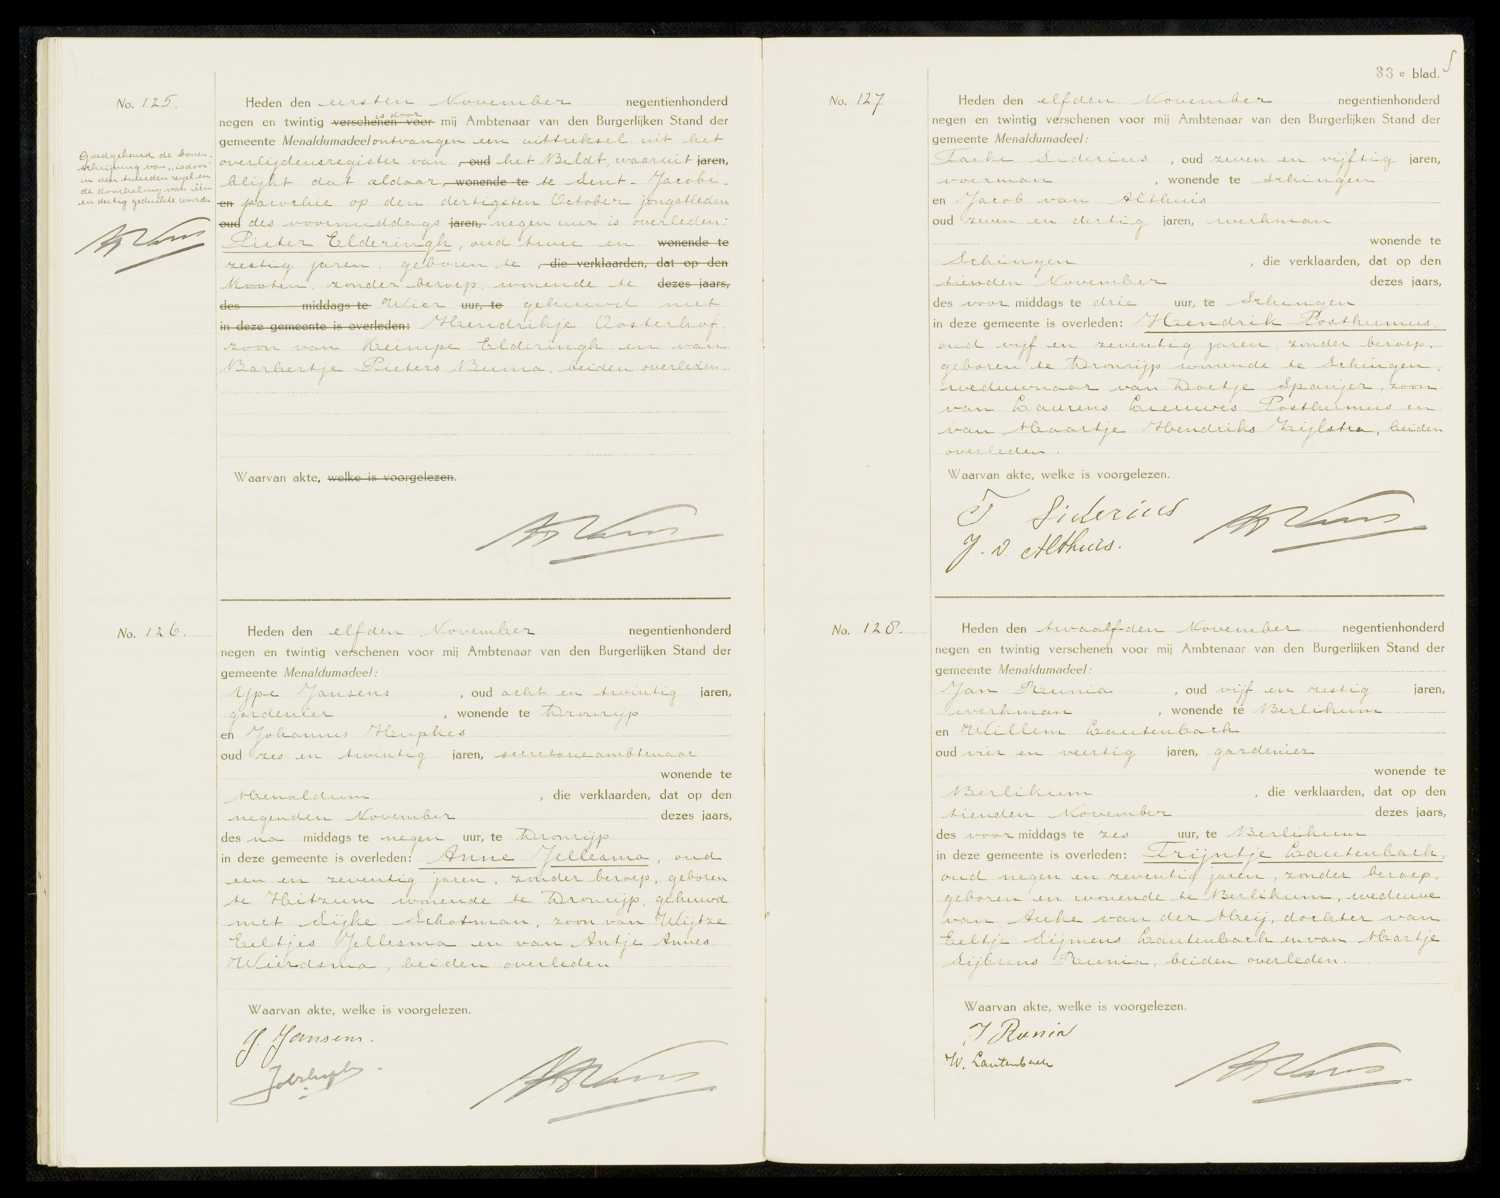 No. 125.
Heden den eersten November negentienhonderd
is door
negen en twintig verschenen voor mij Ambtenaar van den Burgerlijken Stand der
gemeente Menaldumadeel ontvangen een uittreksel uit het
overlijdensregister van , oud het Bildt, waaruit jaren,
blijkt dat aldaar, wonende te te Sint-Jacobi-
en parochie op den dertigsten October jongstleden
oud des voormiddags jaren, negen uur is overleden:
Pieter Elderingh, oud twee en wonende te
zestig jaren, geboren te , die verklaarden, dat op den
Kooten, zonder beroep, wonende te dezes jaars,
des middags te Wier uur, te gehuwd met
in deze gemeente is overleden: Hendrikje Oosterhof.
zoon van Reimpe Elderingh en van
Barbertje Pieters Buma, beiden overleden.
Waarvan akte, welke is voorgelezen.
Goedgekeurd de boven-
schrijving van "is door"
in den tweeden regel en
de doorhaling van één
en dertig gedrukte woorden
No. 126.
Heden den elfden November negentienhonderd
negen en twintig verschenen voor mij Ambtenaar van den Burgerlijken Stand der
gemeente Menaldumadeel:
Ype Jansens , oud acht en twintig jaren,
gardenier , wonende te Dronrijp
en Johannes Heuphes
oud zes en twintig jaren, secretarieambtenaar
wonende te
Menaldum , die verklaarden, dat op den
negenden November dezes jaars,
des na middags te negen uur, te Dronrijp
in deze gemeente is overleden: Anne Jellesma, oud
een en zeventig jaren, zonder beroep, geboren
te Hitzum wonende te Dronrijp, gehuwd
met Sijke Schotman, zoon van Wijtze
Eeltjes Jellesma en van Antje Annes
Wierdsma, beiden overleden
Waarvan akte, welke is voorgelezen.
Y. Jansens.
33e blad.
No. 127
Heden den elfden November negentienhonderd
negen en twintig verschenen voor mij Ambtenaar van den Burgerlijken Stand der
gemeente Menaldumadeel:
Taeke Siderius , oud zeven en vijftig jaren,
voerman , wonende te Schingen
en Jacob van Althuis
oud zeven en dertig jaren, werkman
wonende te
Schingen , die verklaarden, dat op den
tienden November dezes jaars,
des voor middags te drie uur, te Schingen
in deze gemeente is overleden: Hendrik Posthumus,
oud vijf en zeventig jaren, zonder beroep,
geboren te Dronrijp wonende te Schingen,
weduwnaar van Doetje Spanjer, zoon
van Laurens Lieuwes Posthumus en
van Maartje Hendriks Zijlstra, beiden
overleden.
Waarvan akte, welke is voorgelezen.
T Siderius
J. v. Althuis.
No. 128.
Heden den twaalfden November negentienhonderd
negen en twintig verschenen voor mij Ambtenaar van den Burgerlijken Stand der
gemeente Menaldumadeel:
Jan Runia , oud vijf en zestig jaren,
werkman , wonende te Berlikum
en Willem Lautenbach
oud vier en veertig jaren, gardenier
wonende te
Berlikum , die verklaarden, dat op den
tienden November dezes jaars,
des voor middags te zes uur, te Berlikum
in deze gemeente is overleden: Trijntje Lautenbach,
oud negen en zeventig jaren, zonder beroep,
geboren en wonende te Berlikum, weduwe
van Auke van der Meij, dochter van
Eeltje Sijmens Lautenbach en van Maartje
Sijbrens Runia, beiden overleden.
Waarvan akte, welke is voorgelezen.
J Runia
W. Lautenbach